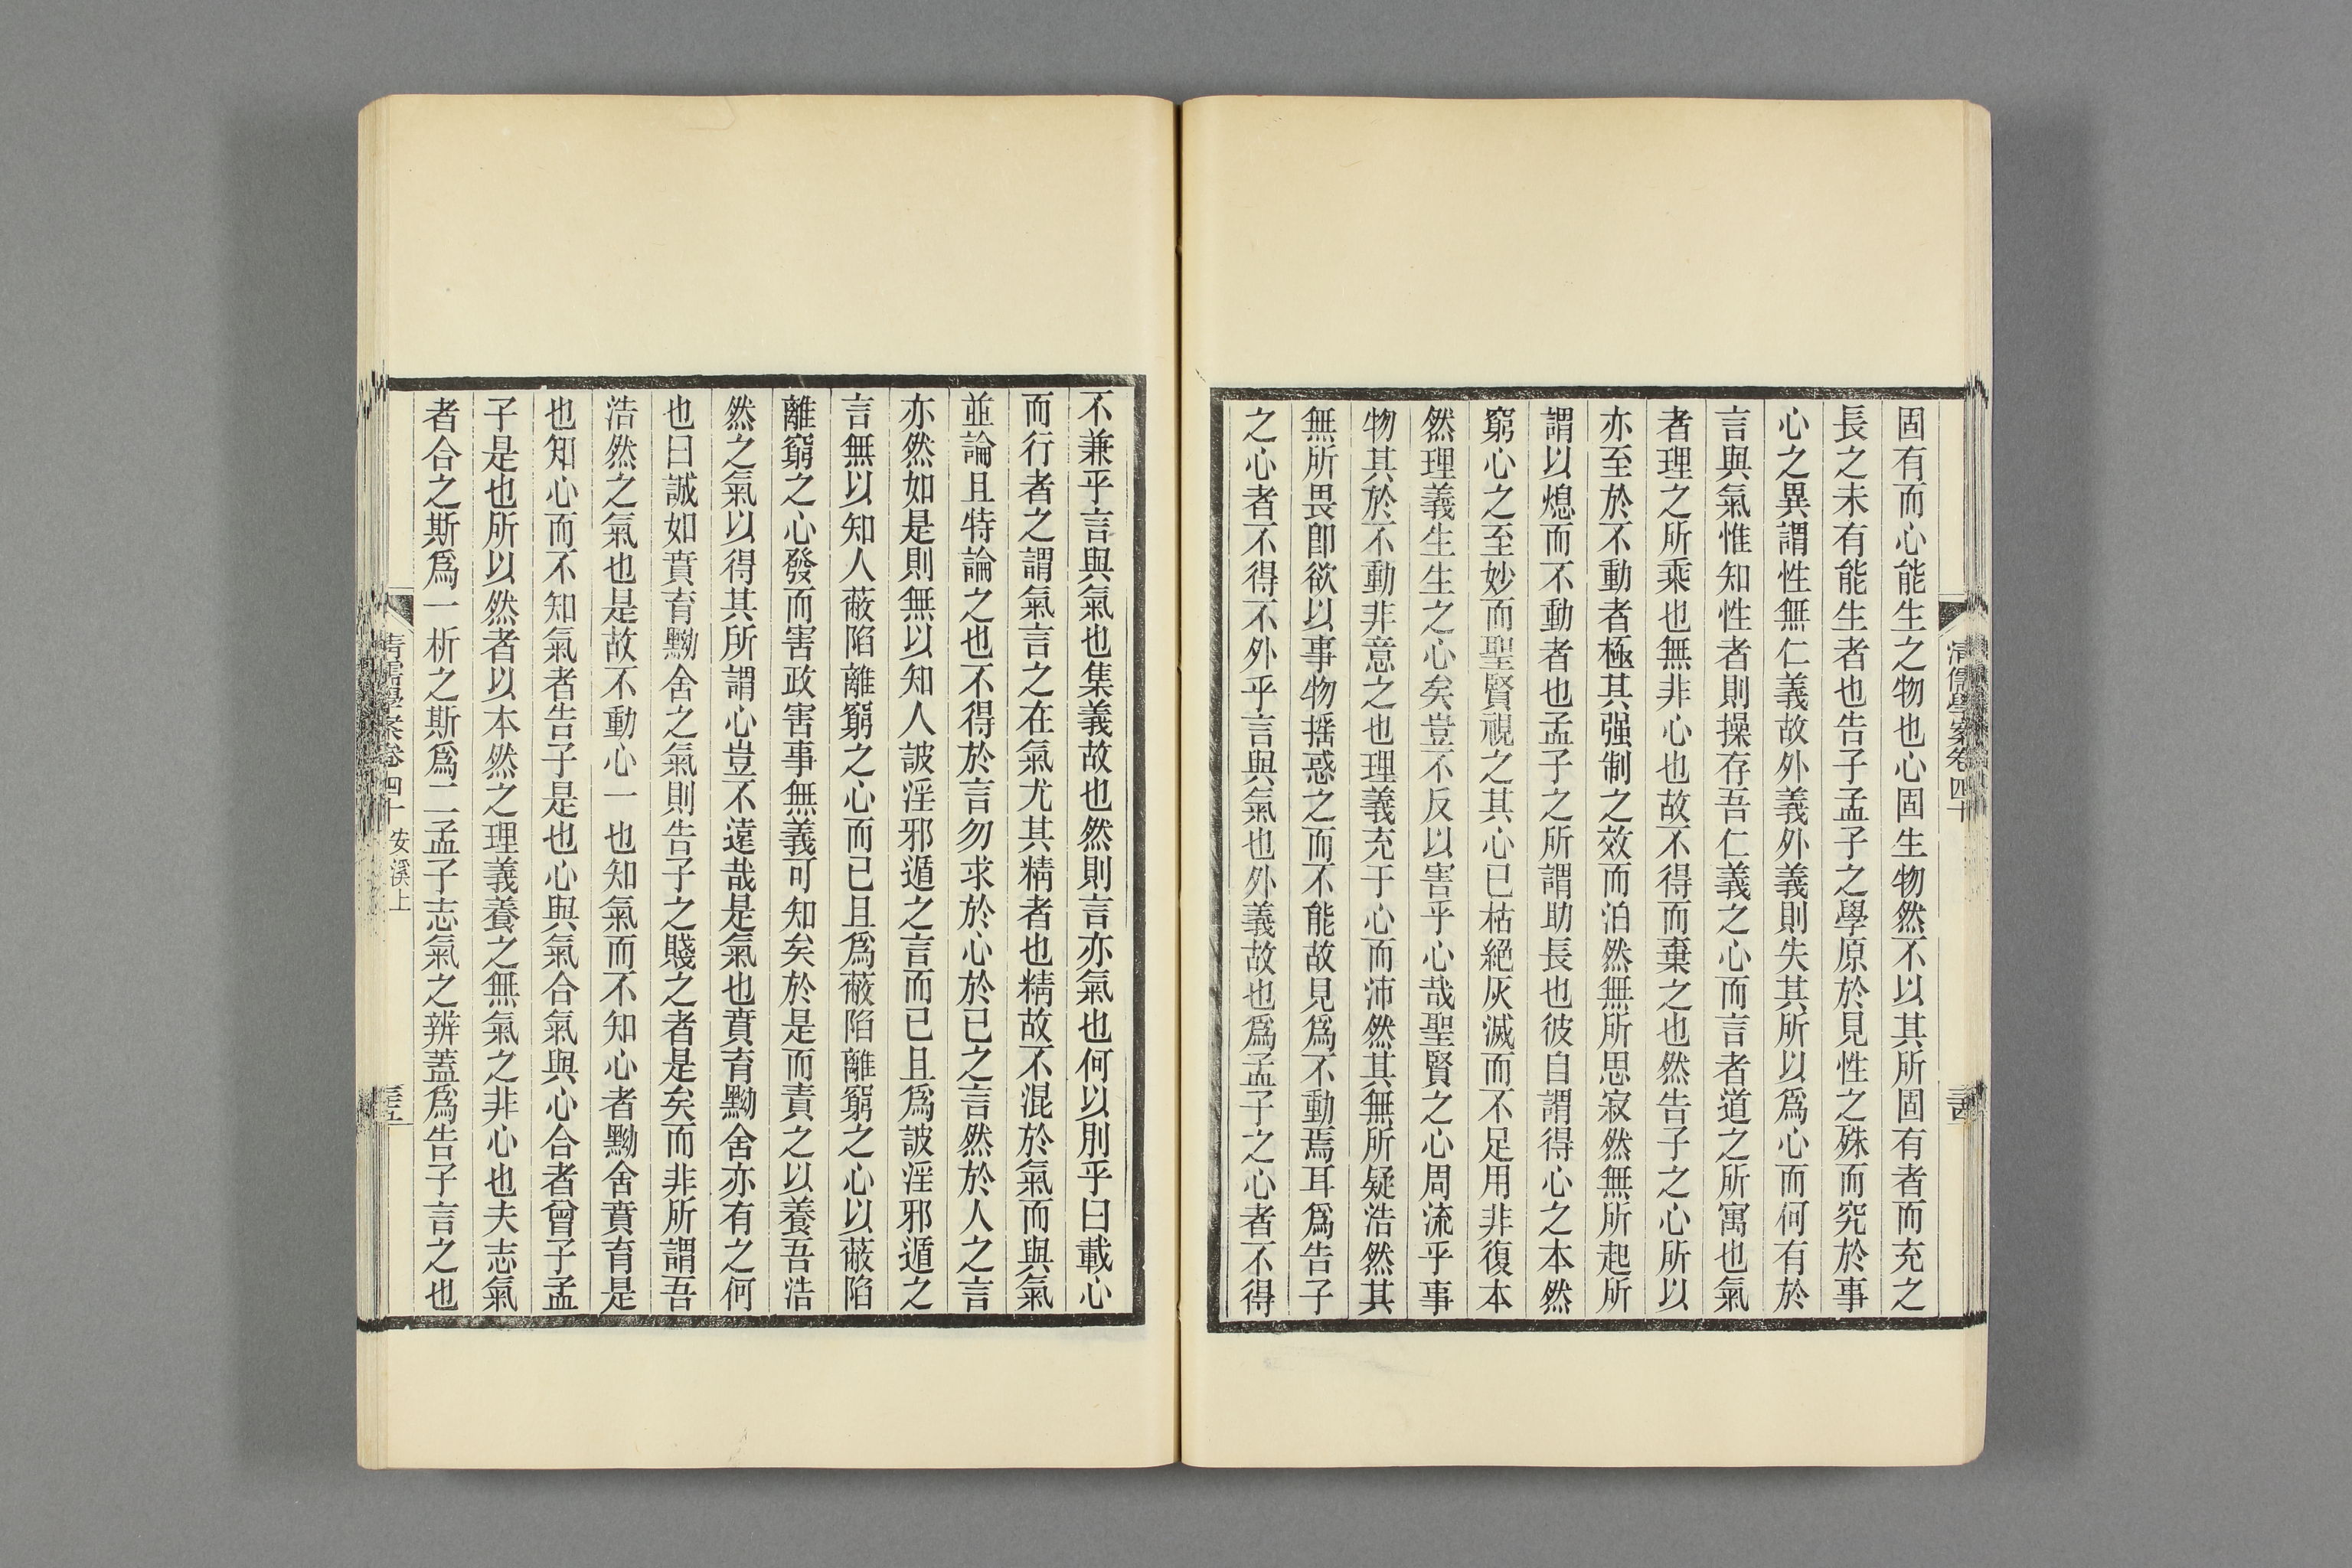 固有而心能生之物也心固生物然不以其所固有者而充之
長之未有能生者也告子孟子之學原於見性之殊而究於事
心之異謂性無仁義故外義外義則失其所以爲心而何有於
言與氣惟知性者則操存吾仁義之心而言者道之所寓也氣
者理之所乘也無非心也故不得而棄之也然告子之心所以
亦至於不動者極其强制之效而泊然無所思寂然無所起所
謂以熄而不動者也孟子之所謂助長也彼自謂得心之本然
窮心之至妙而聖賢視之其心已枯絕灰滅而不足用非復本
然理義生生之心矣豈不反以害乎心哉聖賢之心周流乎事
物其於不動非意之也理義充于心而沛然其無所疑浩然其
無所畏卽欲以事物搖惑之而不能故見爲不動焉耳爲告子
之心者不得不外乎言與氣也外義故也爲孟子之心者不得
清儒學案卷四十
三十四
不兼乎言與氣也集義故也然則言亦氣也何以別乎曰載心
而行者之謂氣言之在氣尤其精者也精故不混於氣而與氣
並論且特論之也不得於言勿求於心於已之言然於人之言
亦然如是則無以知人詖淫邪遁之言而已且爲詖淫邪遁之
言無以知人蔽陷離窮之心而已且爲蔽陷離窮之心以蔽陷
離窮之心發而害政害事無義可知矣於是而責之以養吾浩
然之氣以得其所謂心豈不遠哉是氣也賁育黝舍亦有之何
也曰誠如賁育黝舍之氣則告子之賤之者是矣而非所謂吾
浩然之氣也是故不動心一也知氣而不知心者黝舍賁育是
也知心而不知氣者告子是也心與氣合氣與心合者曾子孟
子是也所以然者以本然之理義養之無氣之非心也夫志氣
者合之斯爲一析之斯爲二孟子志氣之辨蓋爲告子言之也
清儒學案卷四十 安溪上
三十五